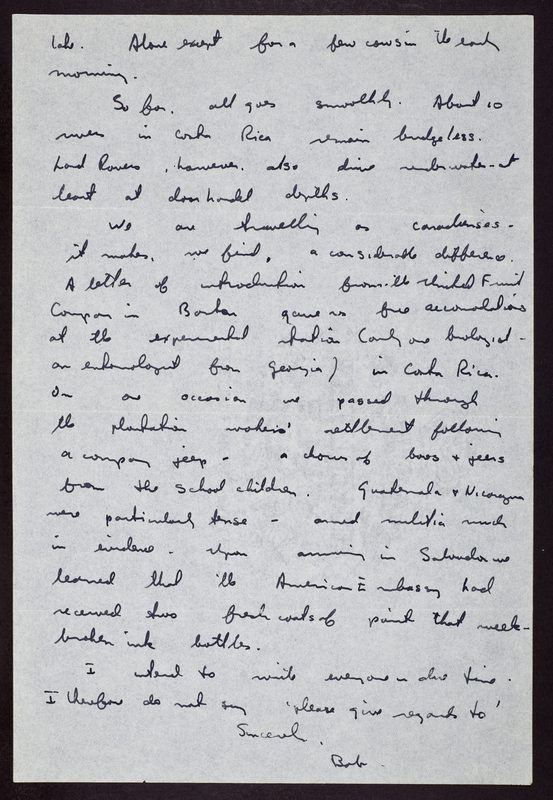 lake. Alone except for a few cows in the early
morning.
So far, all goes smoothly. About 10
rivers in Costa Rica remain bridgeless.
Land Rovers, however, also drive underwater - at
least at door handel depths.
We are travelling as canadienses -
it makes, we find, a considerable difference.
A letter of introduction from the United Fruit
Company in Boston gave us free accomodations
at the experimental station (only one biologist -
an entomologist from Georgia) in Costa Rica.
On one occasion we passed through
the plantation workers' settlement following
a company jeep - a chorus of boos & jeers
from the school children. Guatemala & Nicaragua
were particularly tense - armed militia much
in evidence. Upon arriving in Salvador we
learned that the American Embassy had
received two fresh coats of paint that week -
broken ink bottles.
I intend to write everyone in due time.
I therefore do not say 'please give regards to'
Sincerely,
Bob.